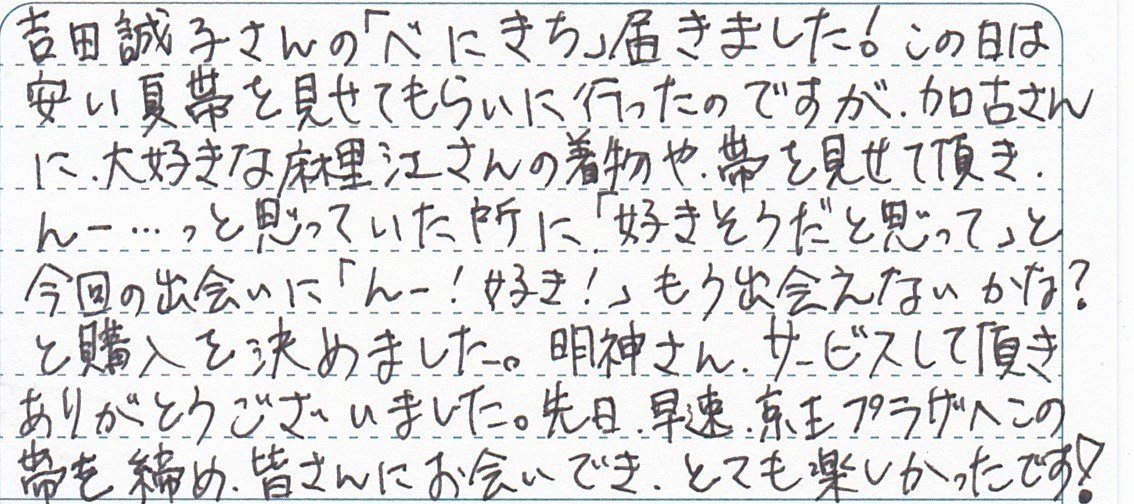 吉田誠子さんの「べにきち」届きました!この日は
安い夏帯を見せてもらいに行ったのですが、加古さん
に、大好きな麻里江さんの着物や、帯を見せて頂き、
んー…っと思っていた所に「好きそうだと思って」と
今回の出会いに「んー!好き!」もう出会えないかな?
と購入を決めました。明神さん、サービスして頂き
ありがとうございました。先日、早速、京王プラザへこの
帯を締め、皆さんにお会いでき、とても楽しかったです!